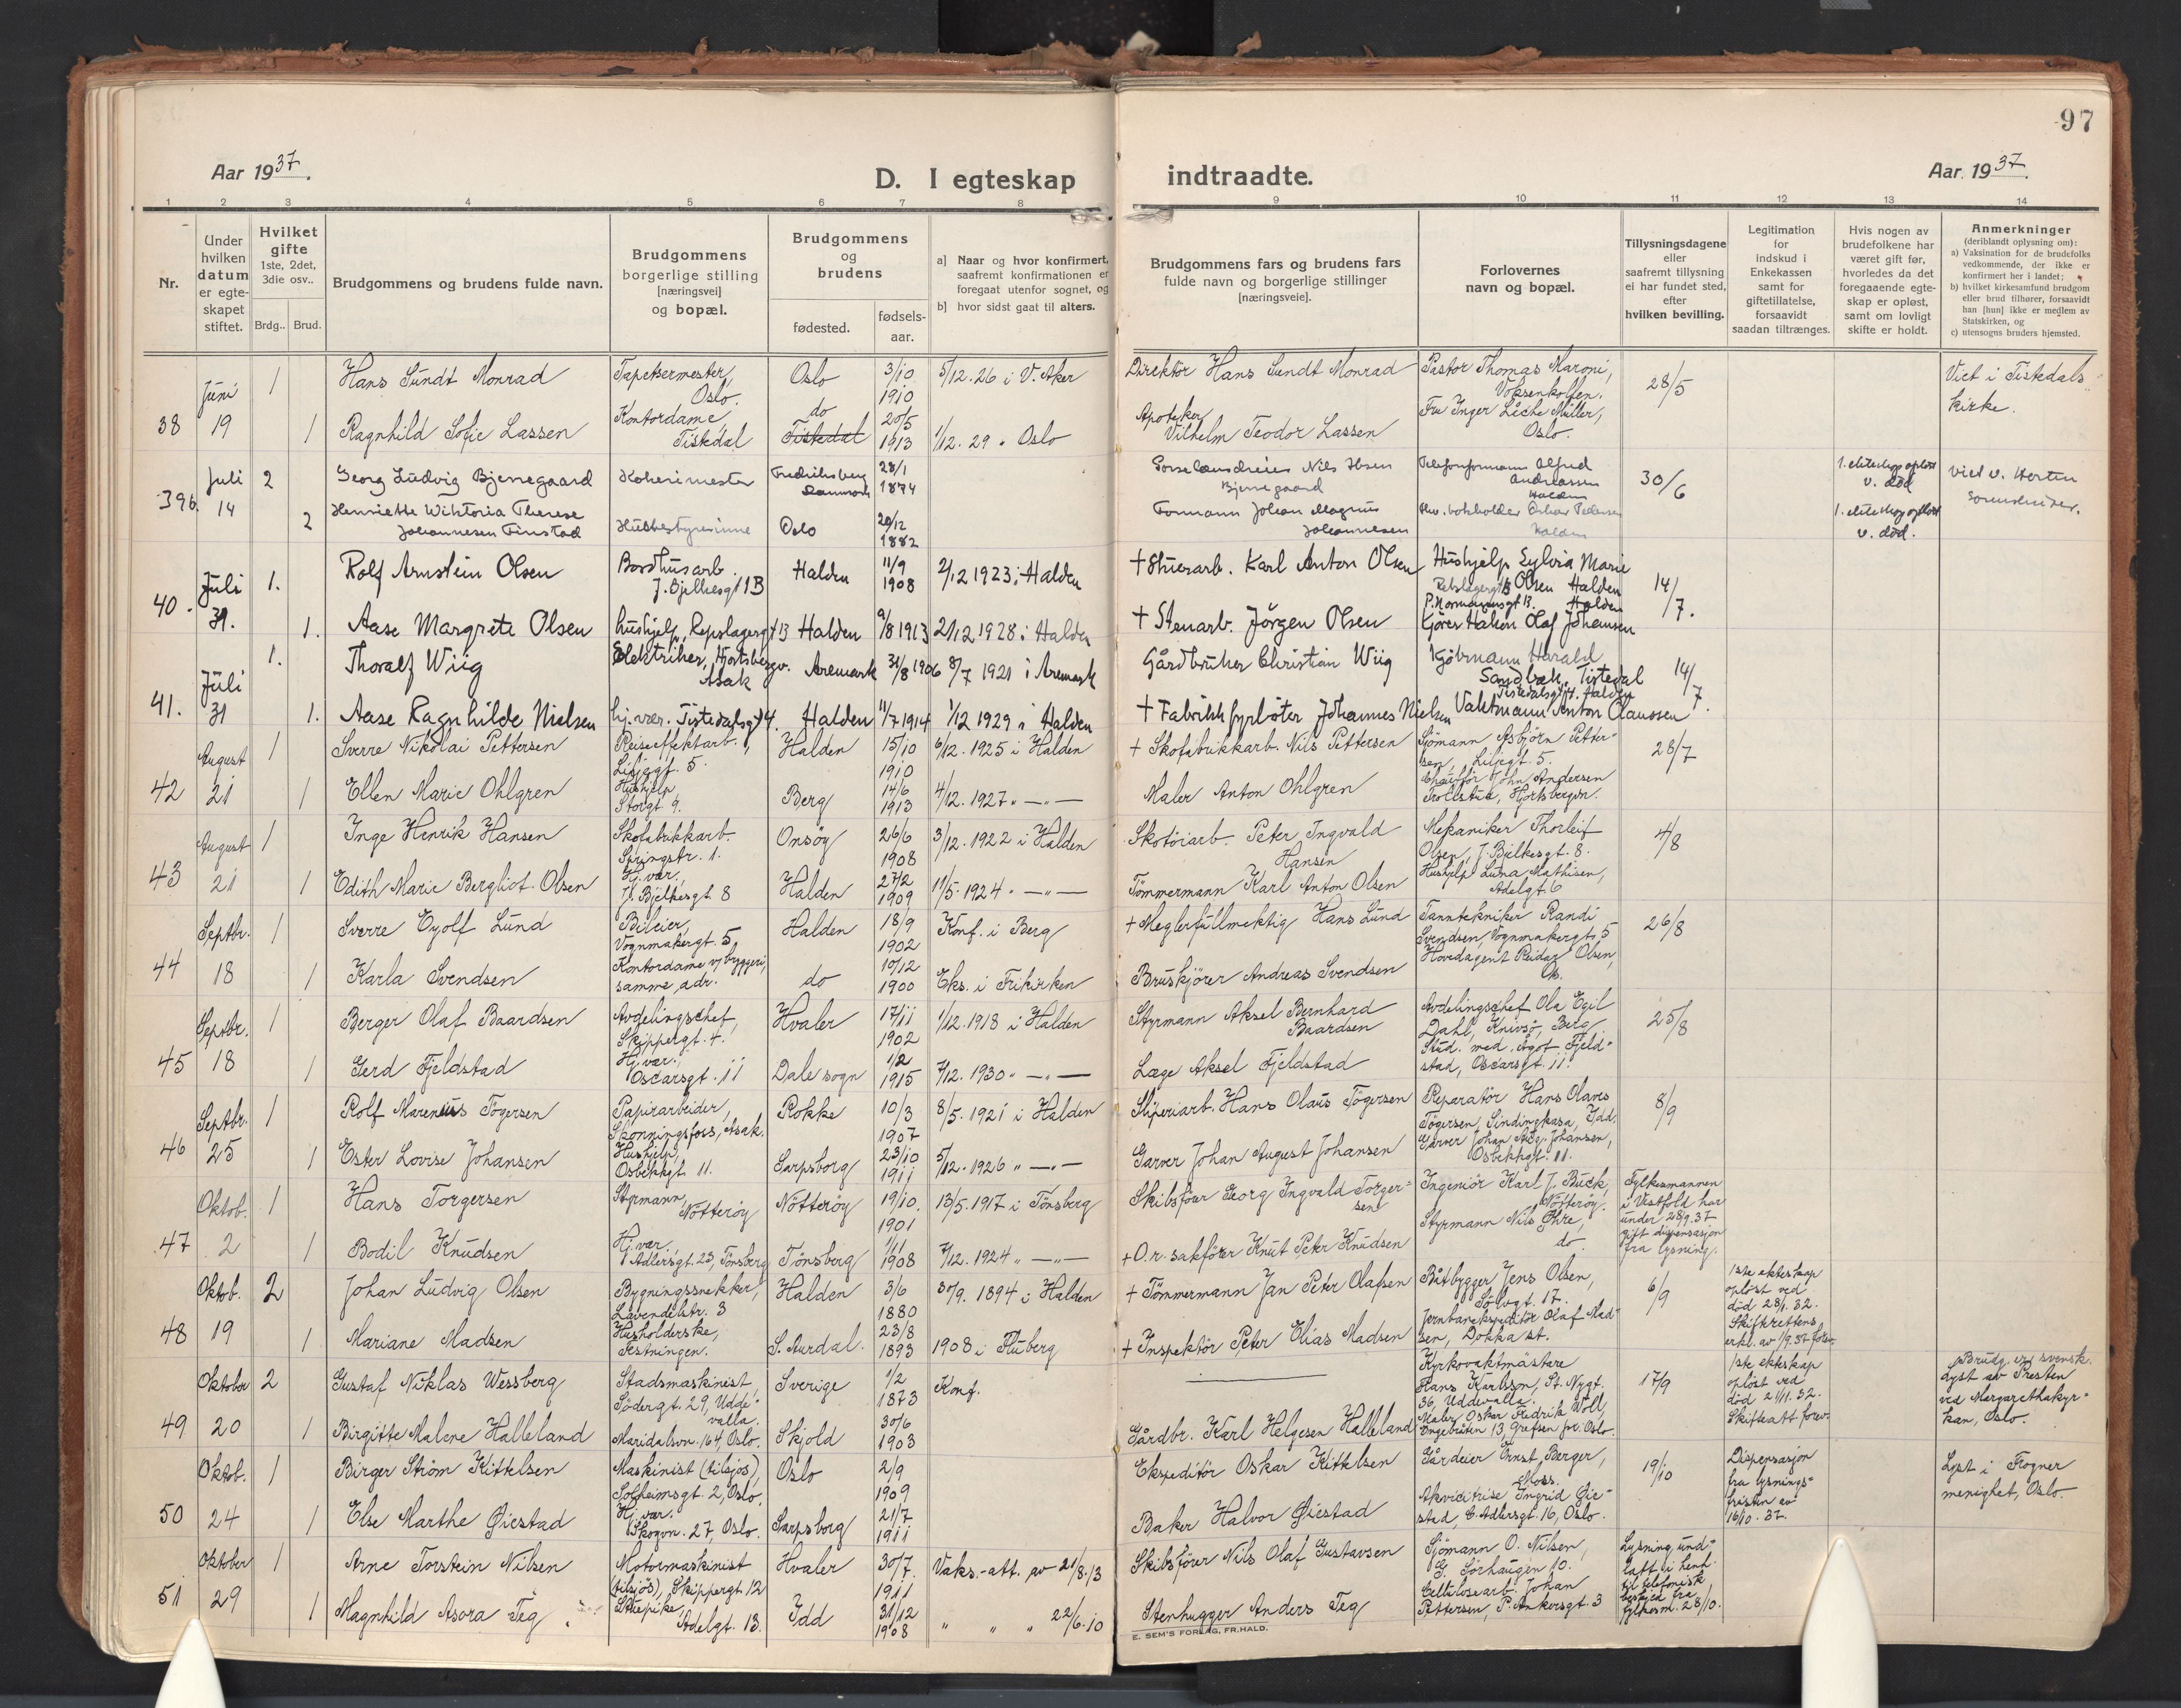 97
Aar 1937.
D. I egteskap indtraadte.
Aar 1937.
1 2 3 4 5 6 7 8 9 10 11 12 13 14
Nr.
Under hvilken datum er egte-skapet stiftet.
Hvilket gifte
1ste, 2det, 3die osv..
Brdg.. Brud.
Brudgommens og brudens fulde navn.
Brudgommens borgerlige stilling [næringsvei] og bopæl.
Brudgommens og brudens
fødested.
fødsels-aar.
a) Naar og hvor konfirmert, saafremt konfirmationen er foregaat utenfor sognet, og
b) hvor sidst gaat til alters.
Brudgommens fars og brudens fars fulde navn og borgerlige stillinger [næringsveie].
Forlovernes navn og bopæl.
Tillysningsdagene eller saafremt tillysning ei har fundet sted, efter hvilken bevilling.
Legitimation for indskud i Enkekassen samt for giftetillatelse, forsaavidt saadan tiltrænges.
Hvis nogen av brudefolkene har været gift før, hvorledes da det foregaaende egte-skap er opløst, samt om lovligt skifte er holdt.
Anmerkninger
(deriblandt oplysning om):
a) Vaksination for de brudefolks vedkommende, der ikke er konfirmert her i landet;
b) hvilket kirkesamfund brudgom eller brud tilhører, forsaavidt han [hun] ikke er medlem av Statskirken, og
c) utensogns bruders hjemsted.
38 Juni 19
1 Hans Sundt Monrad Tapetsermester, Oslo. Oslo 3/10 1910 5/12.26 i V. Aker Direktør Hans Sundt Monrad Pastor Thomas Maroni, Voksenkollen. 28/5 Viet i Tistedals kirke.
1 Ragnhild Sofie Lassen Kontordame, Tistedal do Tistedal 20/5 1913 1/12.29 " Oslo Apoteker Vilhelm Teodor Lassen Fru Inger Liche Müller, Oslo.
39b. Juli 14
2 Georg Ludvig Bjerregaard Fredriksberg Danmark 28/1 1874 Nils Ibsen Bjerregaard Telefonformann Alfred Andreassen Halden 30/6 v. død
2 Henriette Wiktoria Therese Johannesen Finstad Husbestyrerinne Oslo 20/12 1882 Formann Johan Magnus Johannesen Halden v. død.
40. Juli 31.
1. Rolf Arnstein Olsen Bordhusarb. J. Bjelkesgt 1B Halden 11/9 1908 2/12 1923 i Halden + Stuerarb. Karl Anton Olsen Hushjelp Sylvia Marie Olsen Halden 14/7.
1. Aase Margrete Olsen hushjelp, Repslagergt 13 Halden 9/8 1913 2/12 1928 i Halden + Stenarb. Jörgen Olsen P. Normannsgt 13. Halden Kjører Hakon Olaf Johansen
41. Juli 31
1. Thoralf Wiig Elektriker, Hjortsbergv. Asak Aremark 31/8 1906 8/7 1921 i Aremark Gårdbruker Christian Wiig Kjøbmann Harald Sandbæk, Tistedal 14/7
1. Aase Ragnhilde Nielsen hj. vær. Tistedalsgt 4. Halden 11/7 1914 1/12 1929 i Halden + Fabrikkfyrbøter Johannes Nielsen Tistedalsgt 4. Halden Vaktmann Anton Claussen
42 August 21
1 Sverre Nikolai Pettersen Reiseeffektarb., Liljegt. 5. Halden 15/10 1910 6/12.1925 i Halden + Skofabrikkarb. Nils Pettersen Sjömann Asbjörn Petter-sen, Liljegt. 5. 28/7
1 Ellen Marie Ohlgren Hushjelp, Storgt 9. Berg 14/6 1913 4/12.1927 " — " — Maler Anton Ohlgren Chauffør John Andersen Trollstua, Hjortsbergvn.
43 August 21
1 Inge Henrik Hansen Skofabrikkarb. Springstr. 1. Onsøy 26/6 1908 3/12.1922 i Halden Skotöiarb. Peter Ingvald Hansen Mekaniker Thorleif Olsen, J. Bjelkesgt. 8. 4/8
1 Edith Marie Bergliot Olsen Hj. vær. J. Bjelkesgt 8 Halden 27/2 1909 11/5.1924 " — " — Tömmermann Karl Anton Olsen Hushjelp Luna Mathisen, Adelgt. 6
44 Septbr. 18
1 Sverre Eyolf Lund Bileier, Vognmakergt. 5 Halden 18/9 1902 Konf. i Berg + Meglerfullmektig Hans Lund Tanntekniker Randi Svendsen, Vognmakergt. 5 26/8
1 Karla Svendsen Kontordame v/ bryggeri, samme adr. do 10/12 1900 Eks. i Frikirken Bruskjörer Andreas Svendsen Hovedagent Reidar Olsen, Os.
45 Septbr. 18
1 Berger Olaf Baardsen Avdelingschef, Skippergt. 4. Hvaler 17/11 1902 1/12.1918 i Halden Styrmann Aksel Bernhard Baardsen Avdelingschef Ola Egil Dahl, Knivsö, Berg. 25/8
1 Gerd Fjeldstad Hj. vær., Oscarsgt. 11 Dale sogn 1/2 1915 7/12.1930 " — " — Læge Aksel Fjeldstad Stud. med. Ågot Fjeld-stad, Oscarsgt. 11.
46 Septbr. 25
1 Rolf Marenius Tögersen Papirarbeider, Skonningsfoss, Asak. Rokke 10/3 1907 8/5.1921 i Halden Sliperiarb. Hans Olaus Tögersen Reparatör Hans Olaves Tögersen, Sindingkasa, Idd. 8/9
1 Ester Lovise Johansen Hushjelp, Osbekkgt. 11. Sarpsborg 23/10 1911 5/12.1926 " — " — Garver Johan August Johansen Garver Johan Aug. Johansen, Osbekkgt. 11.
47 Oktob. 2
1 Hans Torgersen Styrmann, Nøtterøy Nøtterøy 19/10. 1901 13/5.1917 i Tønsberg Skibsförer Georg Ingvald Torger-sen Ingeniör Karl J. Buck, Nøtterøy. Fylkesmannen i Vestfold har under 28/9.37 gitt dispensasjon fra lysning.
1 Bodil Knudsen Hj. vær. Adlersgt. 23, Tønsberg Tønsberg 1/11 1908 7/12.1924 " — " — + O.r. sakförer Knut Peter Knudsen Styrmann Nils Öhre, do.
48 Oktob. 19
2 Johan Ludvig Olsen Bygningssnekker, Lavendelstr. 3 Halden 3/6 1880 30/9.1894 i Halden + Tömmermann Jan Peter Olafsen Båtbygger Jens Olsen, Sölvgt. 17. 6/9 1ste ekteskap oplöst ved död 28/1.32. Skifterettens erkl. av 1/9.37 forev.
1 Mariane Madsen Husholderske, Festningen. S. Aurdal. 23/8 1893 1908 i Fluberg + Inspektör Peter Elias Madsen Jernbaneekspeditör Olaf Mad-sen, Dokka st.
49 Oktober 20
2 Gustaf Niklas Wessberg Stadsmaskinist, Södergt. 29, Udde-valla. Sverige 1/2 1873 Konf. Kyrkovaktmästare Hans Karlsson, St. Nygt. 36, Uddevalla. 17/9 1ste ekteskap oplöst ved död 21/11.32. Skifteatt forev. Brudg. er svensk. Lyst av Presten ved Margarethakyr-kan, Oslo.
1 Birgitte Malene Halleland Maridalsvn. 164, Oslo. Skjold 30/6 1903 Gårdbr. Karl Helgesen Halleland Maler Oskar Fredrik Woll, Engebråten 13, Grefsen pr. Oslo.
50 Oktob. 24
1 Birger Ström Kittelsen Maskinist (tilsjös), Solheimsgt. 2, Oslo. Oslo 2/9 1909 Ekspeditör Oskar Kittelsen Gårdeier Ernst Berger, Moss. 19/10 Dispensasjon fra lysnings-fristen av 16/10.37. Lyst i Frogner menighet, Oslo.
1 Else Marthe Øiestad Hj. vær. Skogvn. 27, Oslo. Sarpsborg 21/7 1911 Baker Halvor Øiestad Akvisitrise Ingrid Øie-stad, C. Adlersgt. 16, Oslo.
51 Oktober 29
1 Arne Torstein Nilsen Motormaskinist (tilsjös), Skippergt. 12 Hvaler 30/7. 1911 Vaks.-att. av 21/8.13 Skibsförer Nils Olaf Gustavsen Sjömann O. Nilsen, G. Sörhaugen 10. Lysning und-latt i henh. til telefonisk beskjed fra fylkesm. 28/10.
1 Magnhild Asora Teg Adelgt. 13. Idd 31/12 1908 " " " 22/6.10 Stenhugger Anders Teg Cellulosearb. Johan Pettersen, P. Ankersgt. 3
E. SEM'S FORLAG, FR.HALD.